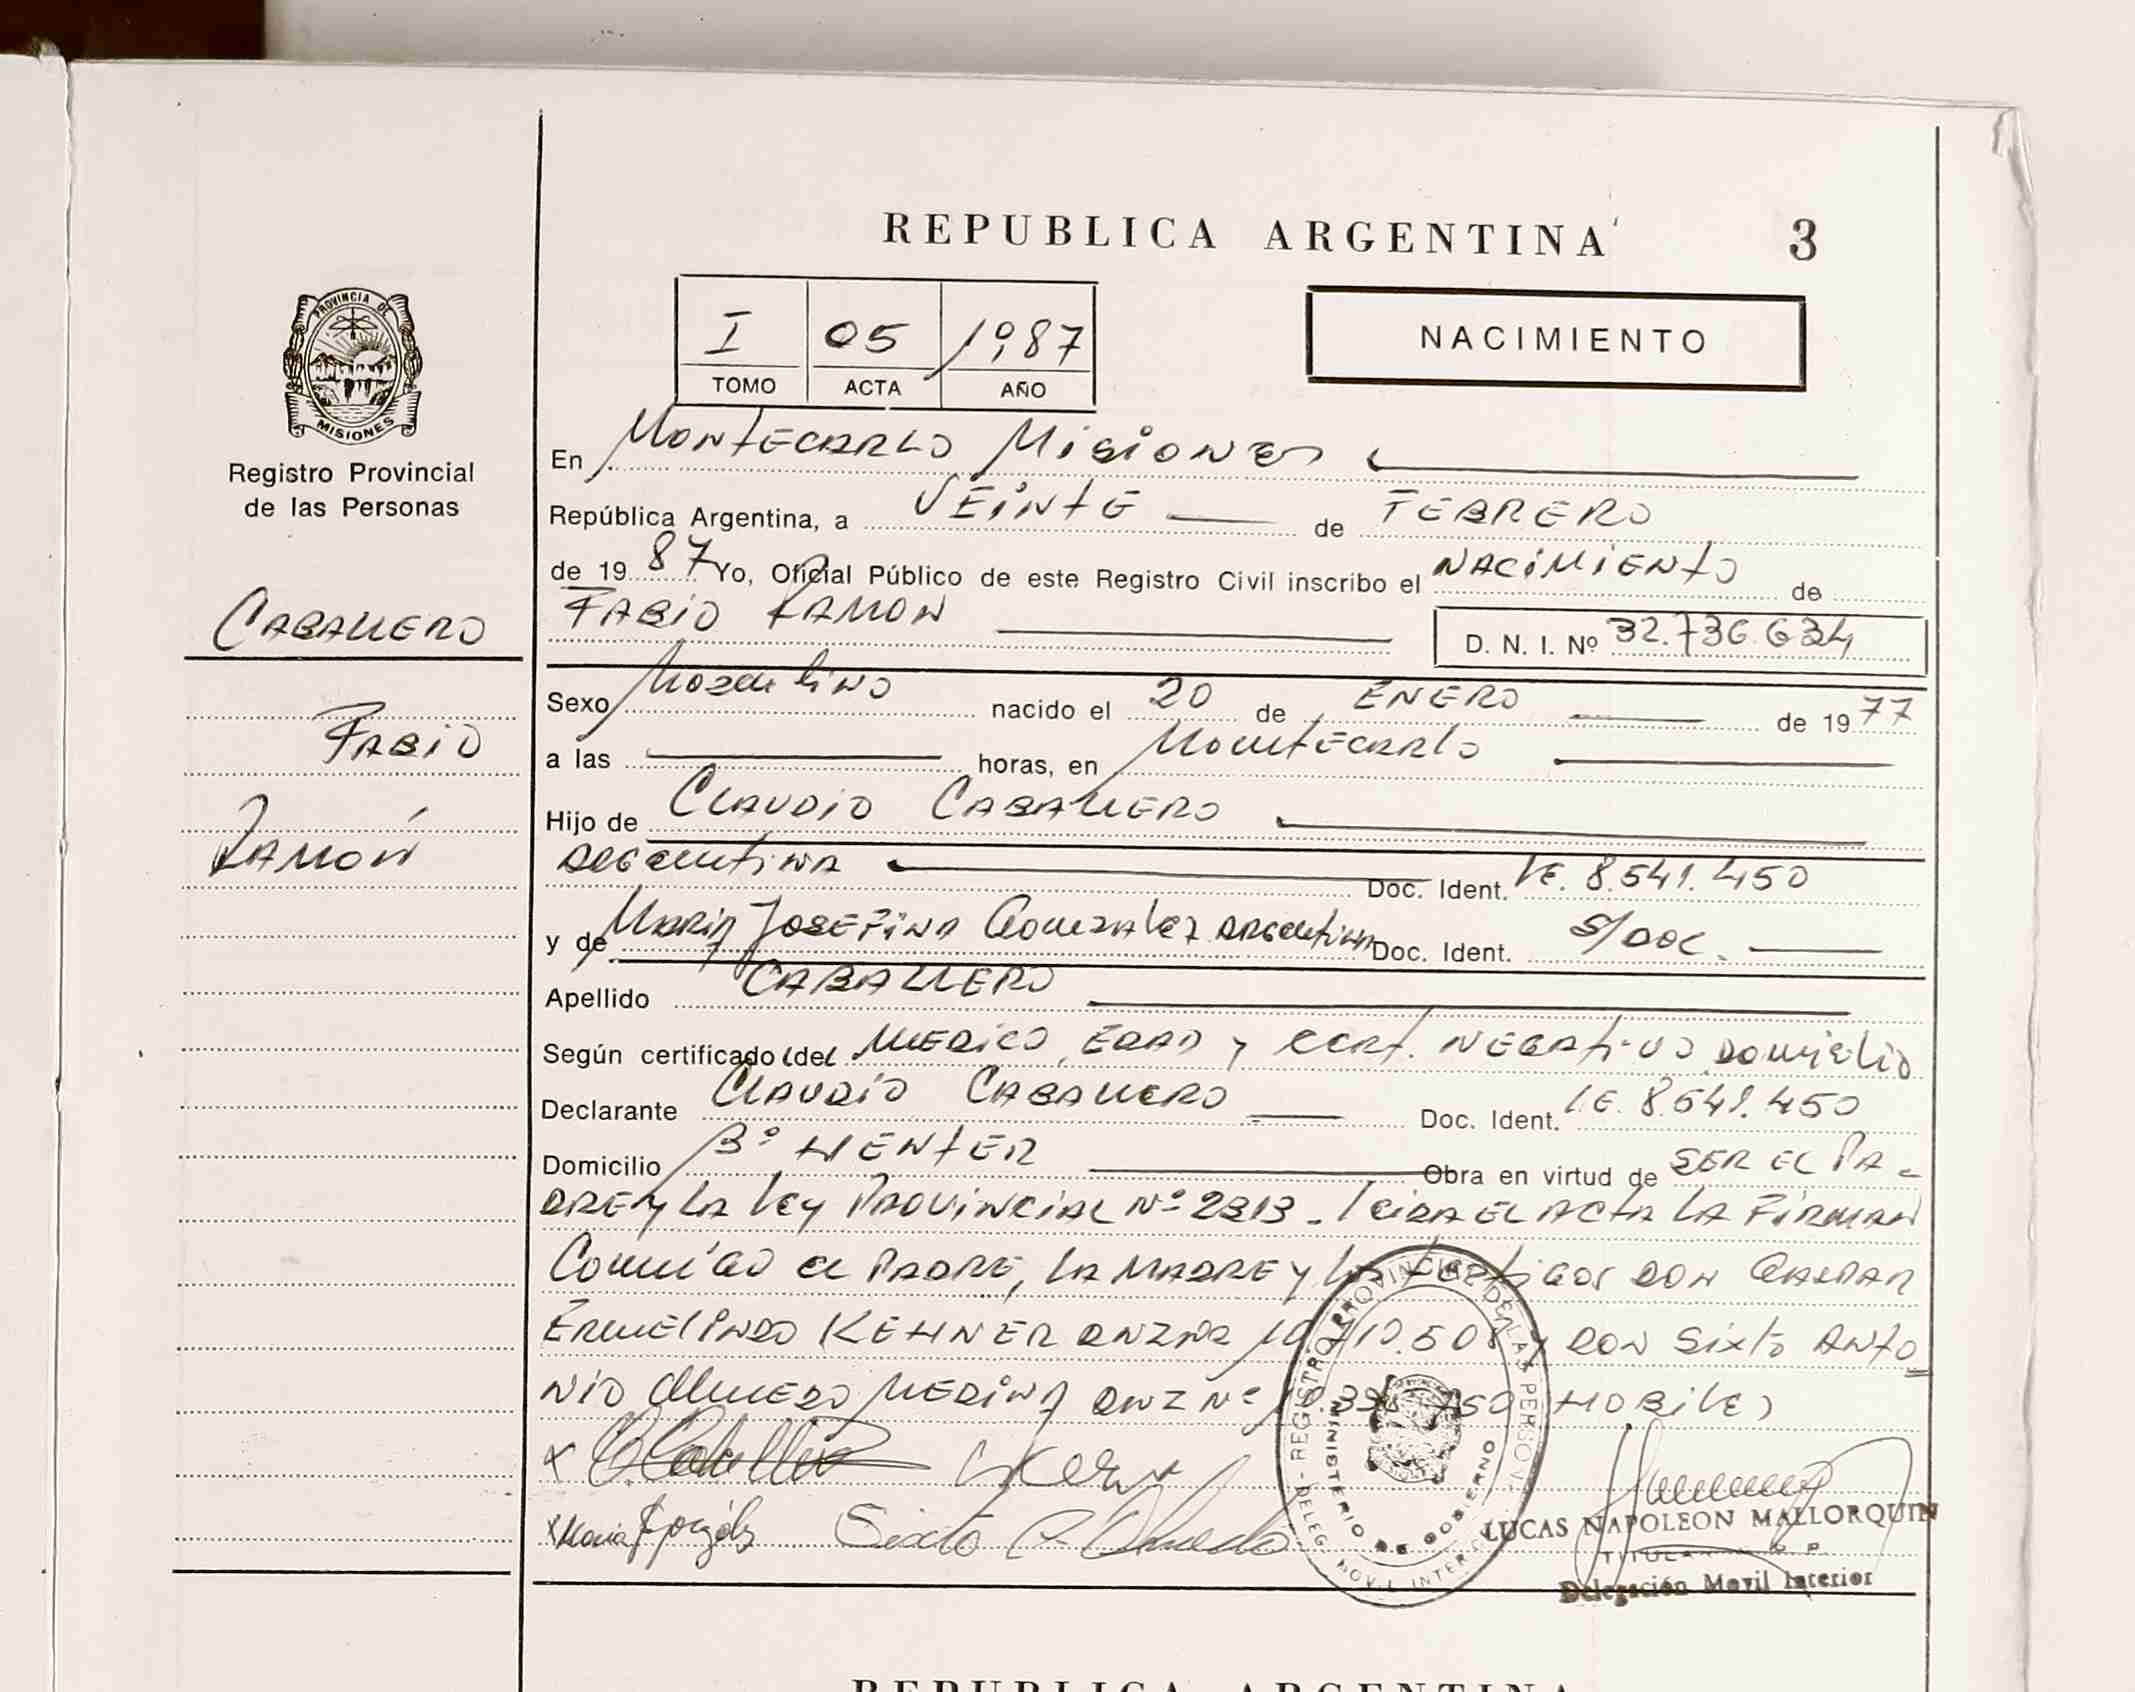 REPUBLICA ARGENTINA
3
I 05 1987
TOMO ACTA AÑO
NACIMIENTO
PROVINCIA DE
MISIONES
Registro Provincial
de las Personas
CABALLERO
FABIO
RAMÓN
En MONTECARLO MISIONES
República Argentina, a VEINTE de FEBRERO
de 19 87 Yo, Oficial Público de este Registro Civil inscribo el NACIMIENTO de
FABIO RAMON
D. N. I. Nº 32.736.634
Sexo Masculino nacido el 20 de ENERO de 19 77
a las horas, en MONTECARLO
Hijo de CLAUDIO CABALLERO
ARGENTINA Doc. Ident. LE. 8.541.450
y de MARIA JOSEFINA GONZALEZ ARGENTINA Doc. Ident. S/DOC.
Apellido CABALLERO
Según certificado (del MEDICO, EDAD y CERT. NEGATIVO, DOMICILIO
Declarante CLAUDIO CABALLERO Doc. Ident. L.E. 8.541.450
Domicilio Bº Obra en virtud de SER EL PA-
DRE y LA LEY PROVINCIAL Nº 2313 - LEIDA EL ACTA LA FIRMAN
CONMIGO el PADRE, LA MADRE y los testigos DON GASPAR
ERMELINDO KEHNER y DON SIXTO ANTO
NIO MEDINA Nº
Maria González
Sixto A.
REGISTRO PROVINCIAL DE LAS PERSONAS
MINISTERIO DE GOBIERNO
DELEG. MOVIL INTERIOR
LUCAS NAPOLEON MALLORQUIN
TITULAR
Delegación Movil Interior
REPUBLICA ARGENTINA